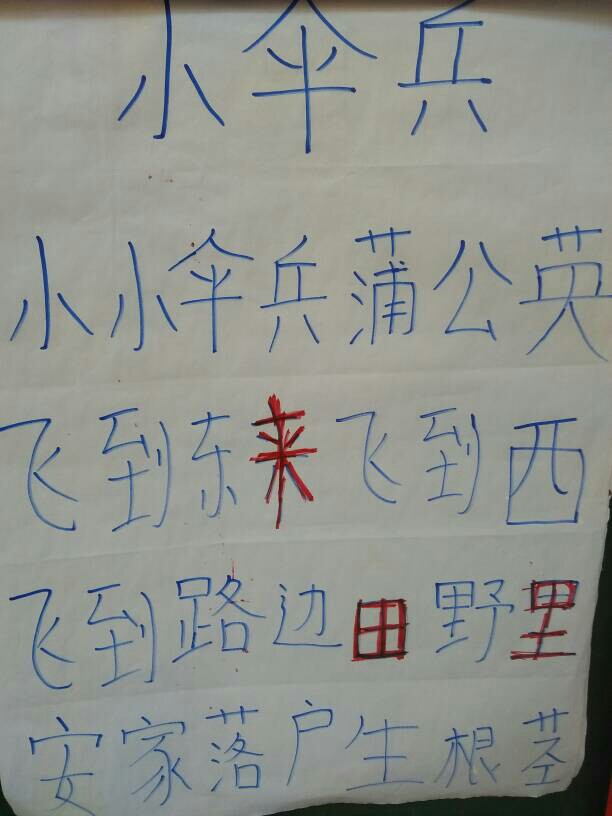 小伞兵
小小伞兵蒲公英
飞到东来飞到西
飞到路边田野里
安家落户生根茎